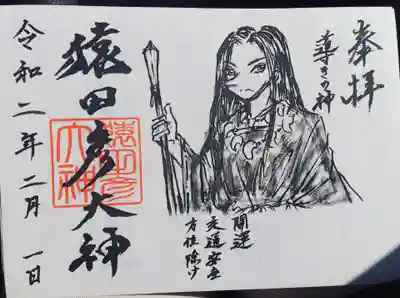 奉拝
導きの神
開運
交通安全
方位除け
猿田彦大神
猿田彦大神
令和二年二月一日